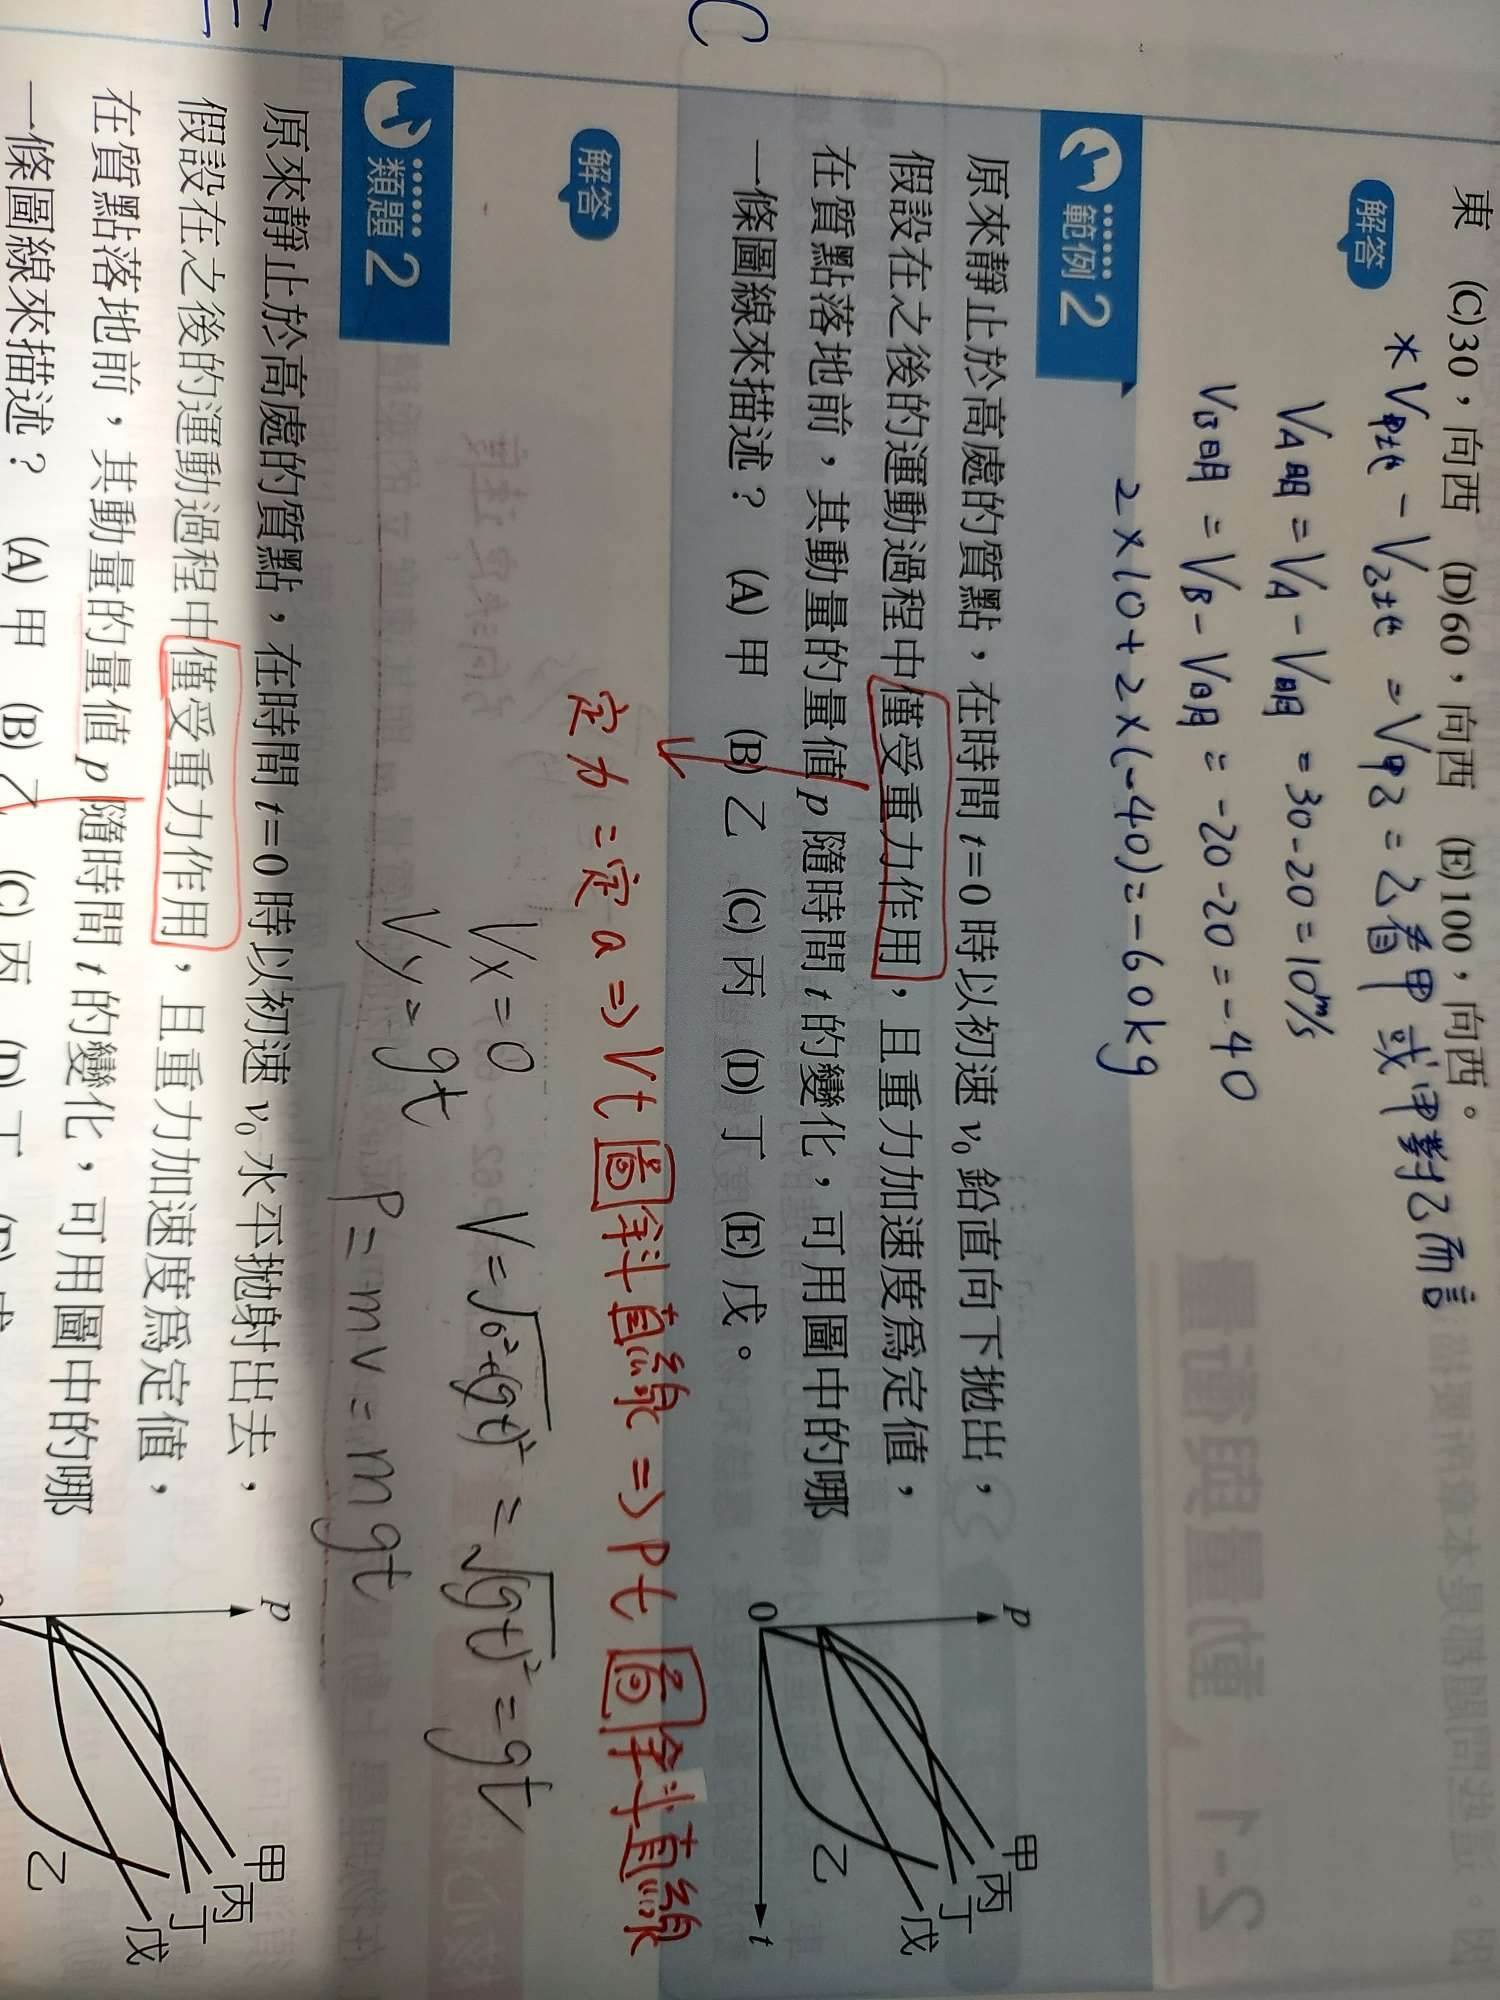 東 (C)30，向西 (D)60，向西 (E)100，向西。
解答
* V甲地 - V乙地 = V甲乙 = 乙看甲 或 甲對乙而言
VA明 = VA - V明 = 30-20=10m/s
VB明 = VB - V明 = -20-20=-40
2×10+2×(-40)=-60kg
範例2
原來靜止於高處的質點，在時間t=0時以初速v₀鉛直向下拋出，
假設在之後的運動過程中僅受重力作用，且重力加速度為定值，
在質點落地前，其動量的量值p隨時間t的變化，可用圖中的哪
一條圖線來描述？ (A)甲 (B)乙 (C)丙 (D)丁 (E)戊。
p
0
t
甲
丙
丁
戊
乙
C
解答
定力=定a⇒Vt圖斜直線⇒Pt圖斜直線
Vx=0 V=√0²+(gt)² = √(gt)² = gt
Vy=gt P=mv=mgt
類題2
原來靜止於高處的質點，在時間t=0時以初速v₀水平拋射出去，
假設在之後的運動過程中僅受重力作用，且重力加速度為定值，
在質點落地前，其動量的量值p隨時間t的變化，可用圖中的哪
一條圖線來描述？ (A)甲 (B)乙 (C)丙 (D)丁
p
甲
丙
丁
戊
乙